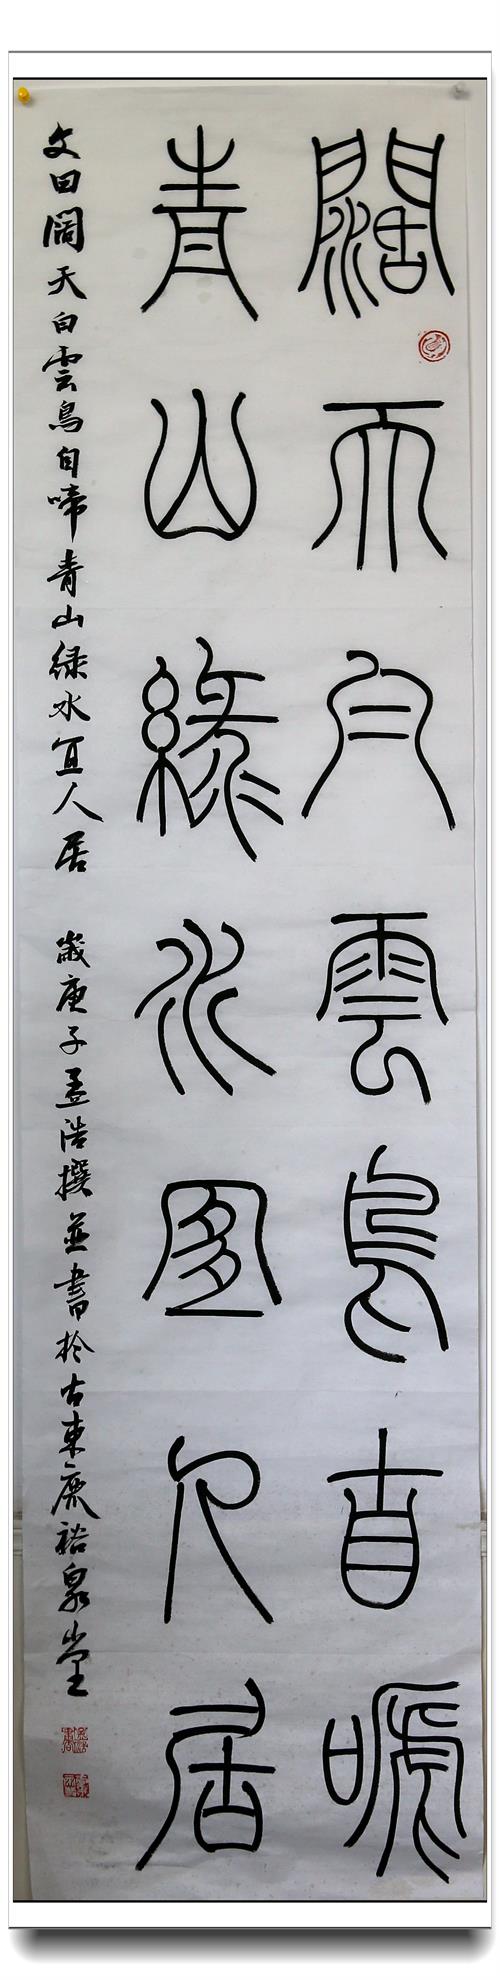 闊天白雲鳥自嗁
青山緑水宜人居
文曰闊天白雲鳥自啼青山緑水宜人居 歲庚子孟浩撰並書於古東鹿裕泉堂